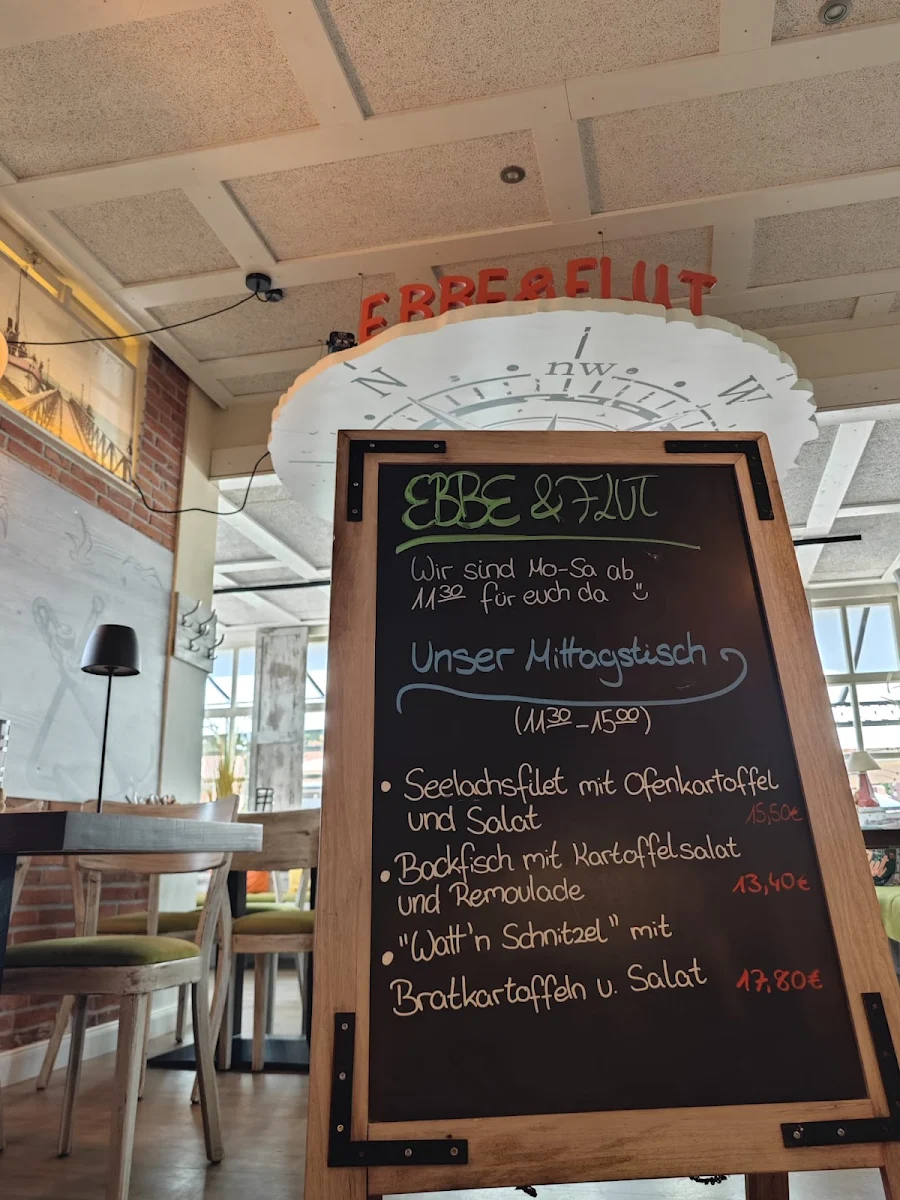 EBBE&FLUT
N
nw
W
EBBE & FLUT
Wir sind Mo-Sa ab
11³⁰ für euch da ☺
Unser Mittagstisch
(11³⁰-15⁰⁰)
• Seelachsfilet mit Ofenkartoffel
und Salat 15,50€
• Backfisch mit Kartoffelsalat
und Remoulade 13,40€
• "Watt'n Schnitzel" mit
Bratkartoffeln u. Salat 17,80€